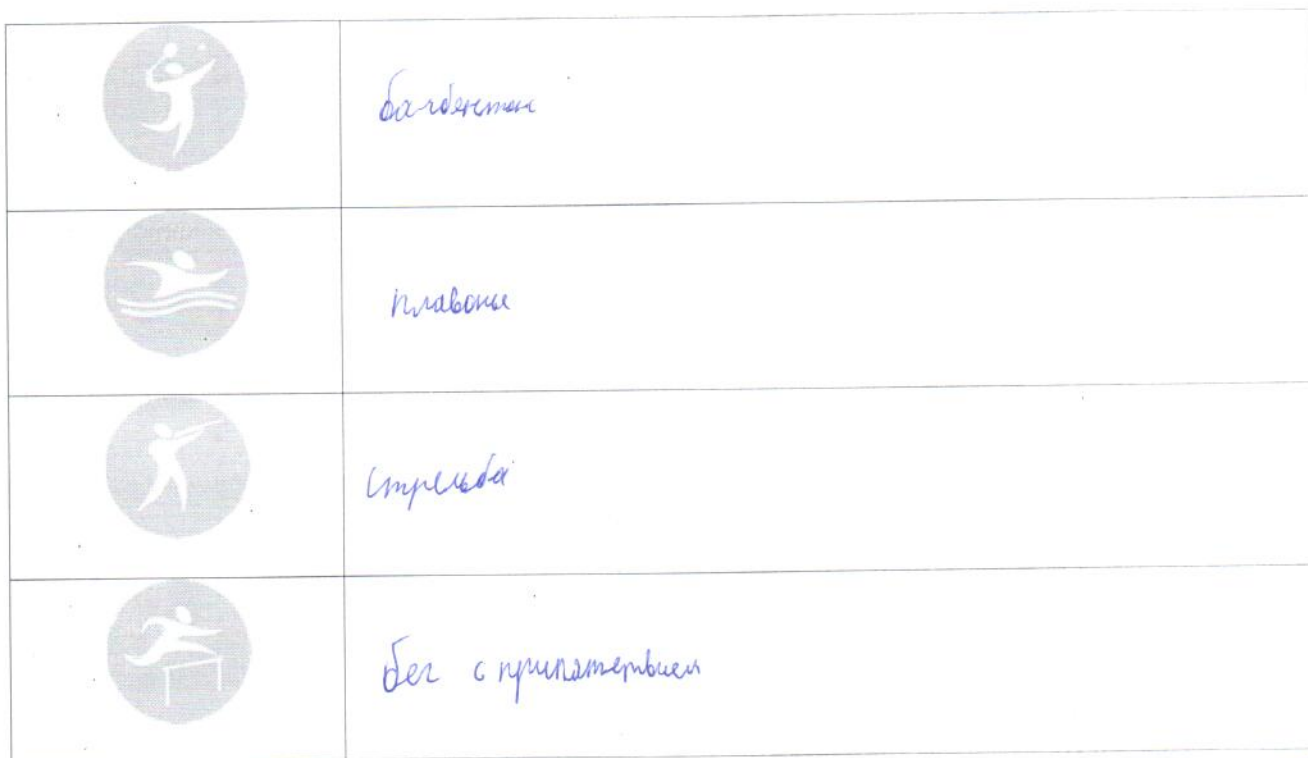 бачбентон
плаванье
стрельба
бег с припятервием